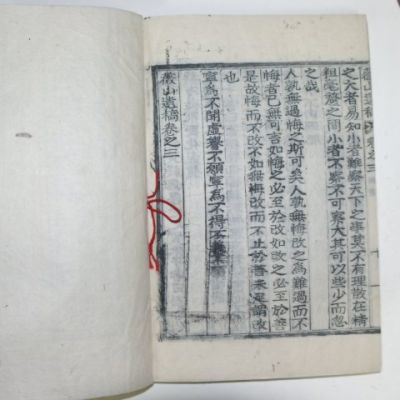 之大者易知小者難察天下之事莫不有理散在精
粗毫釐之間小者不察不可察大其可以些少而忽
之哉
人孰無過悔之斯可矣人孰無悔改之為難過而不
悔者已無可言如悔之必至於改如改之必至於善
是故悔而不改不如無悔改而不止於善未足謂改
也
寧為不聞虛譽不願寧為不得不
山遺稿卷之三